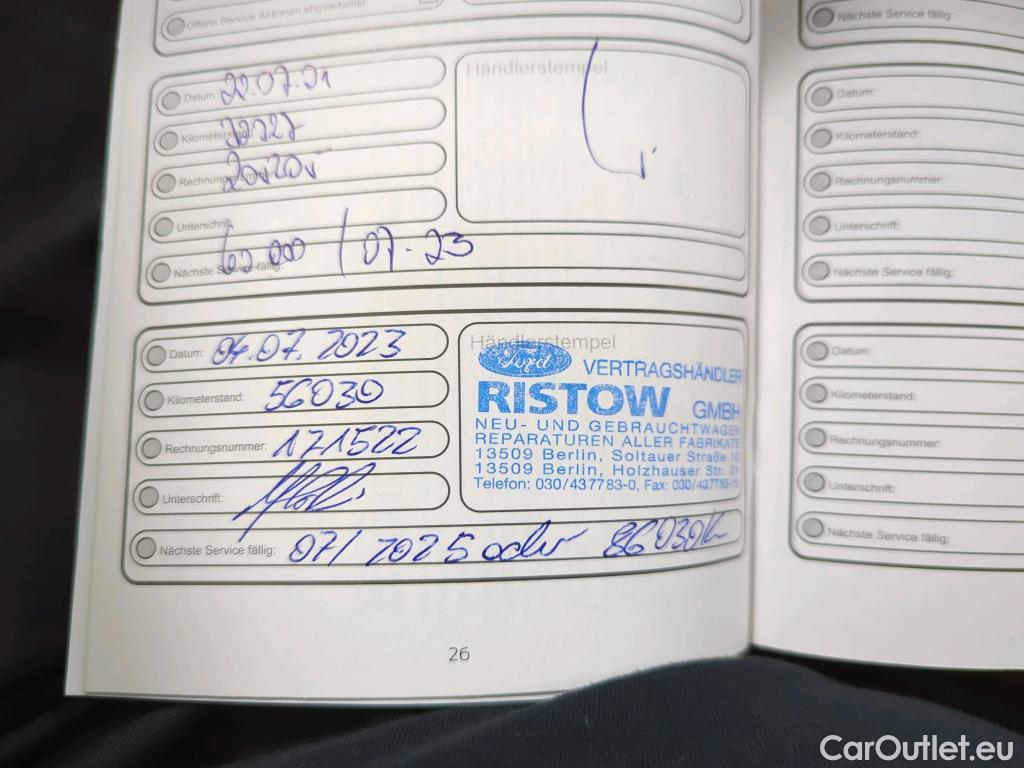 Offene Service Aktionen abgearbeitet:
Datum: 22.07.21
Kilometerstand:
Rechnungsnummer:
Unterschrift:
Nächste Service fällig: / 07-23
Händlerstempel
Datum: 04.07.2023
Kilometerstand: 56030
Rechnungsnummer: 171522
Unterschrift:
Nächste Service fällig: 07/2025 oder 86030K
Händlerstempel
Ford VERTRAGSHÄNDLER
RISTOW GMBH
NEU- UND GEBRAUCHTWAGEN
REPARATUREN ALLER FABRIKATE
13509 Berlin, Soltauer Straße
13509 Berlin, Holzhauser Str.
Telefon: 030/437783-0, Fax: 030/437783-
26
Nächste Service fällig:
Datum:
Kilometerstand:
Rechnungsnummer:
Unterschrift:
Nächste Service fällig:
Datum:
Kilometerstand:
Rechnungsnummer:
Unterschrift:
Nächste Service fällig:
CarOutlet.eu